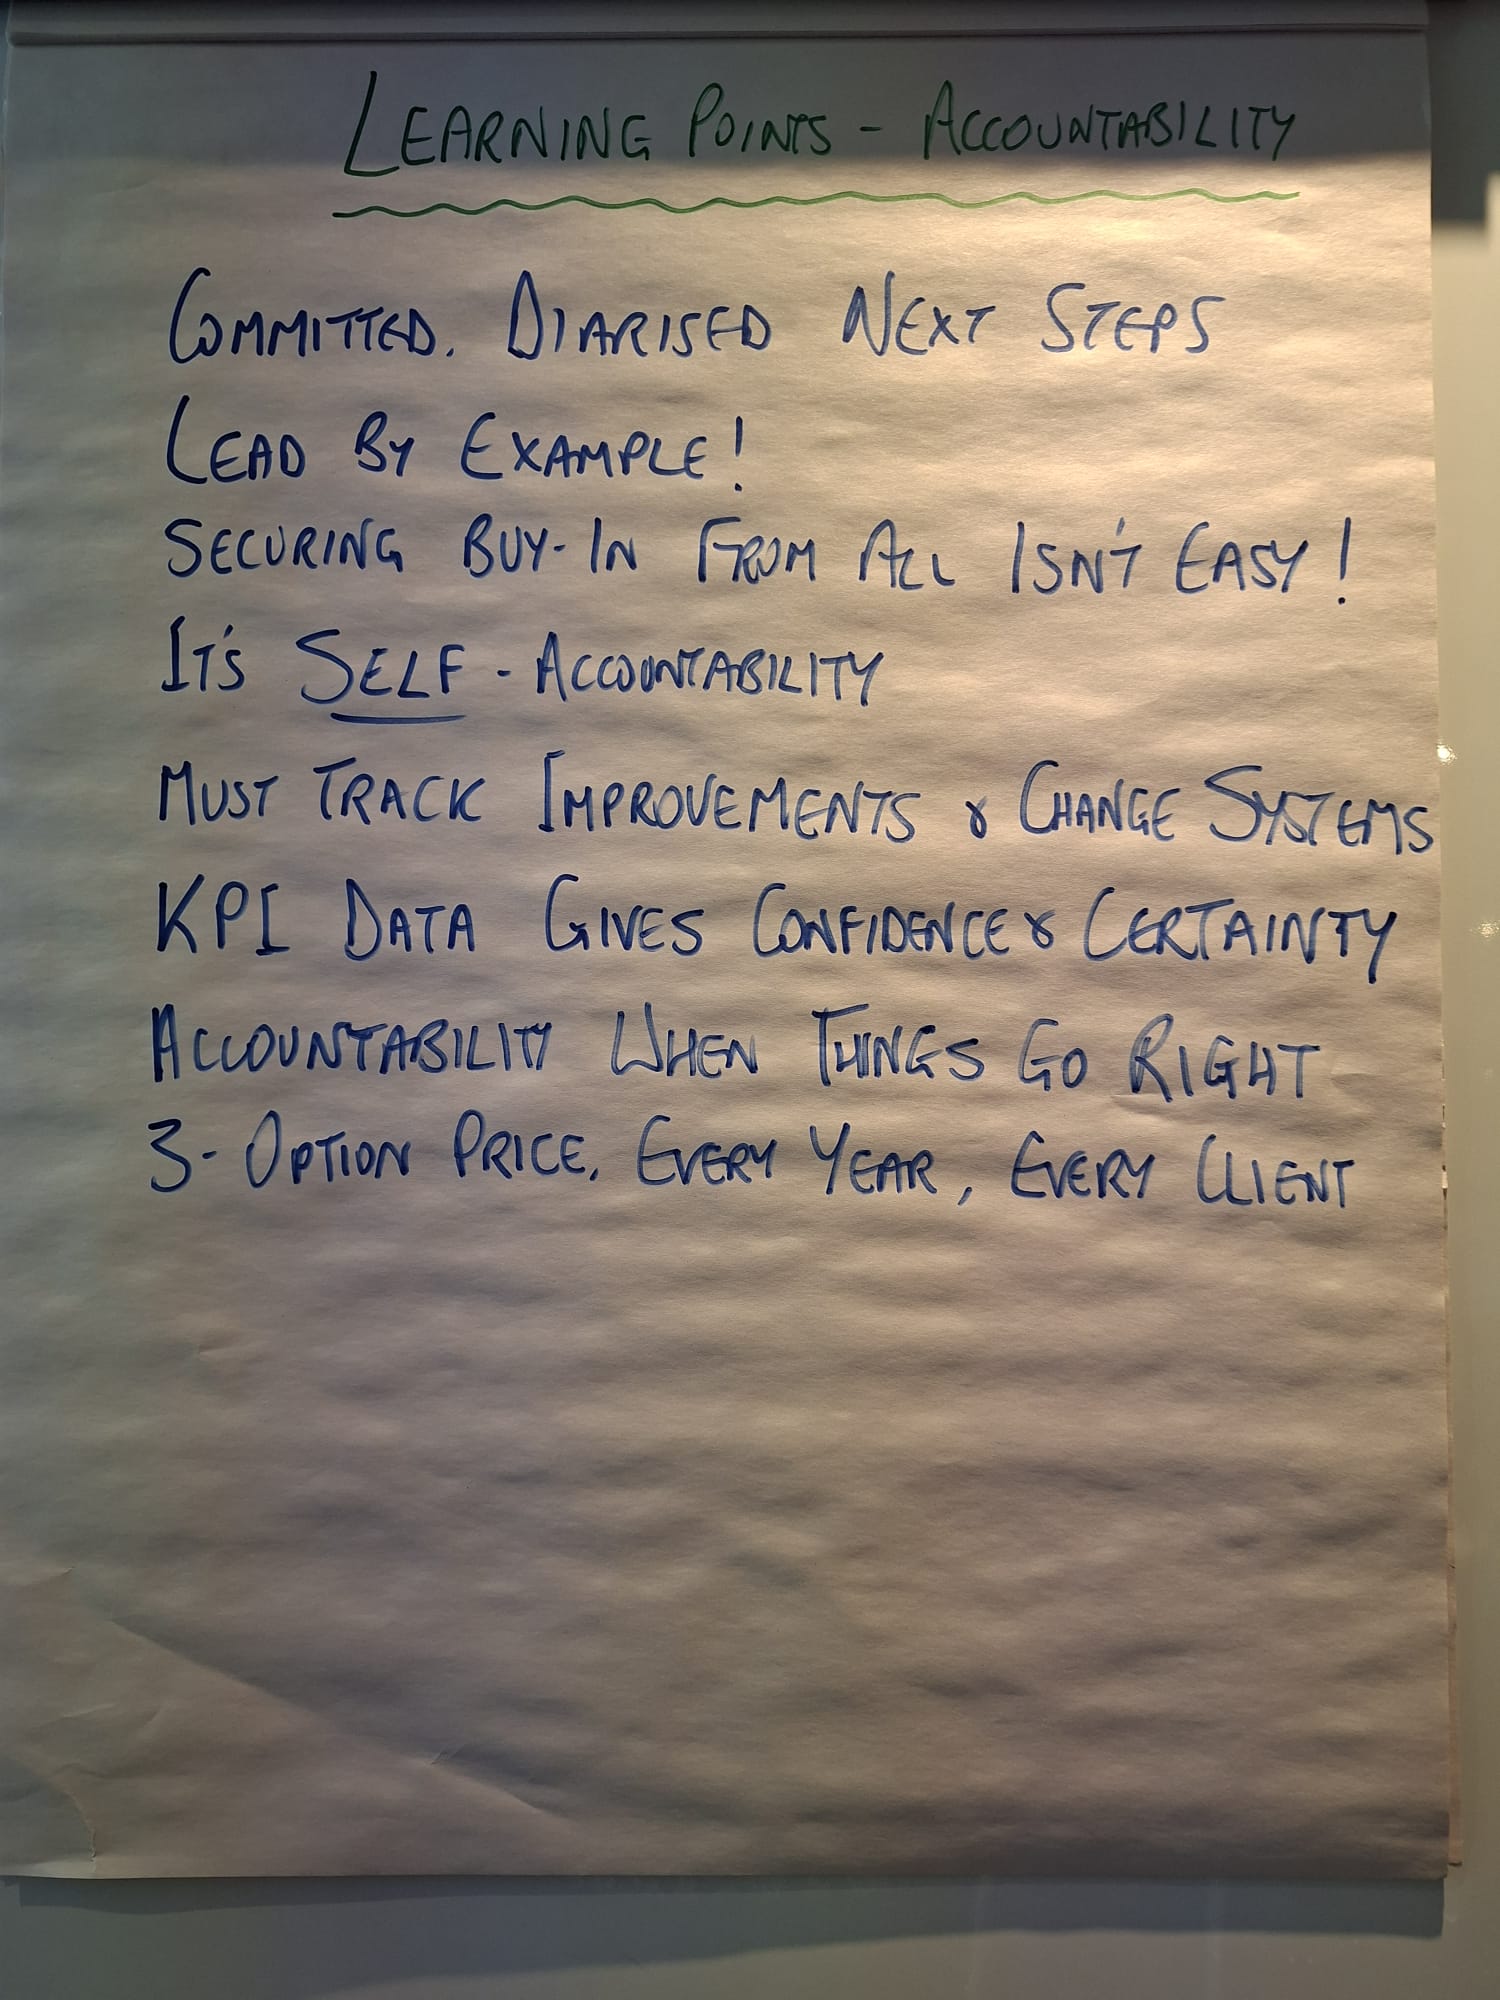 LEARNING POINTS - ACCOUNTABILITY
COMMITTED. DIARISED NEXT STEPS
LEAD BY EXAMPLE!
SECURING BUY-IN FROM ALL ISN'T EASY!
IT'S SELF - ACCOUNTABILITY
MUST TRACK IMPROVEMENTS & CHANGE SYSTEMS
KPI DATA GIVES CONFIDENCE & CERTAINTY
ACCOUNTABILITY WHEN THINGS GO RIGHT
3- OPTION PRICE, EVERY YEAR, EVERY CLIENT